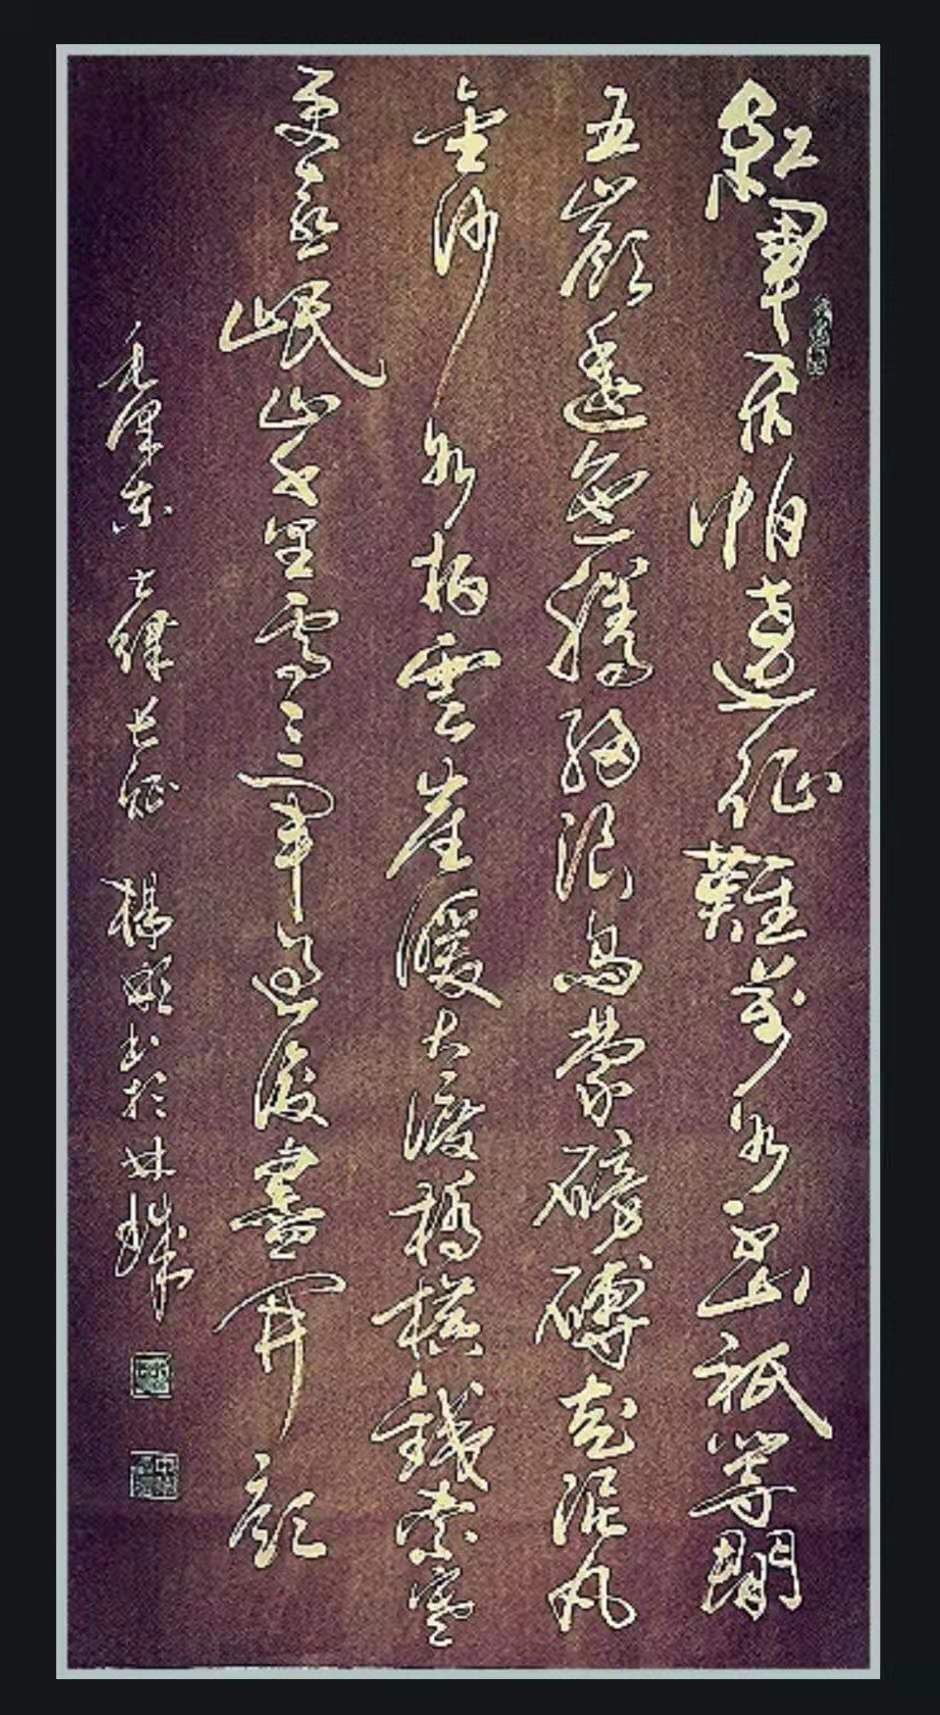 紅軍不怕遠征難萬水千山祇等閑
五嶺逶迤騰細浪烏蒙磅礴走泥丸
金沙水拍雲崖暖大渡橋橫鐵索寒
更喜岷山千里雪三軍過後盡開顏
毛澤東 七律長征 楊书於林城